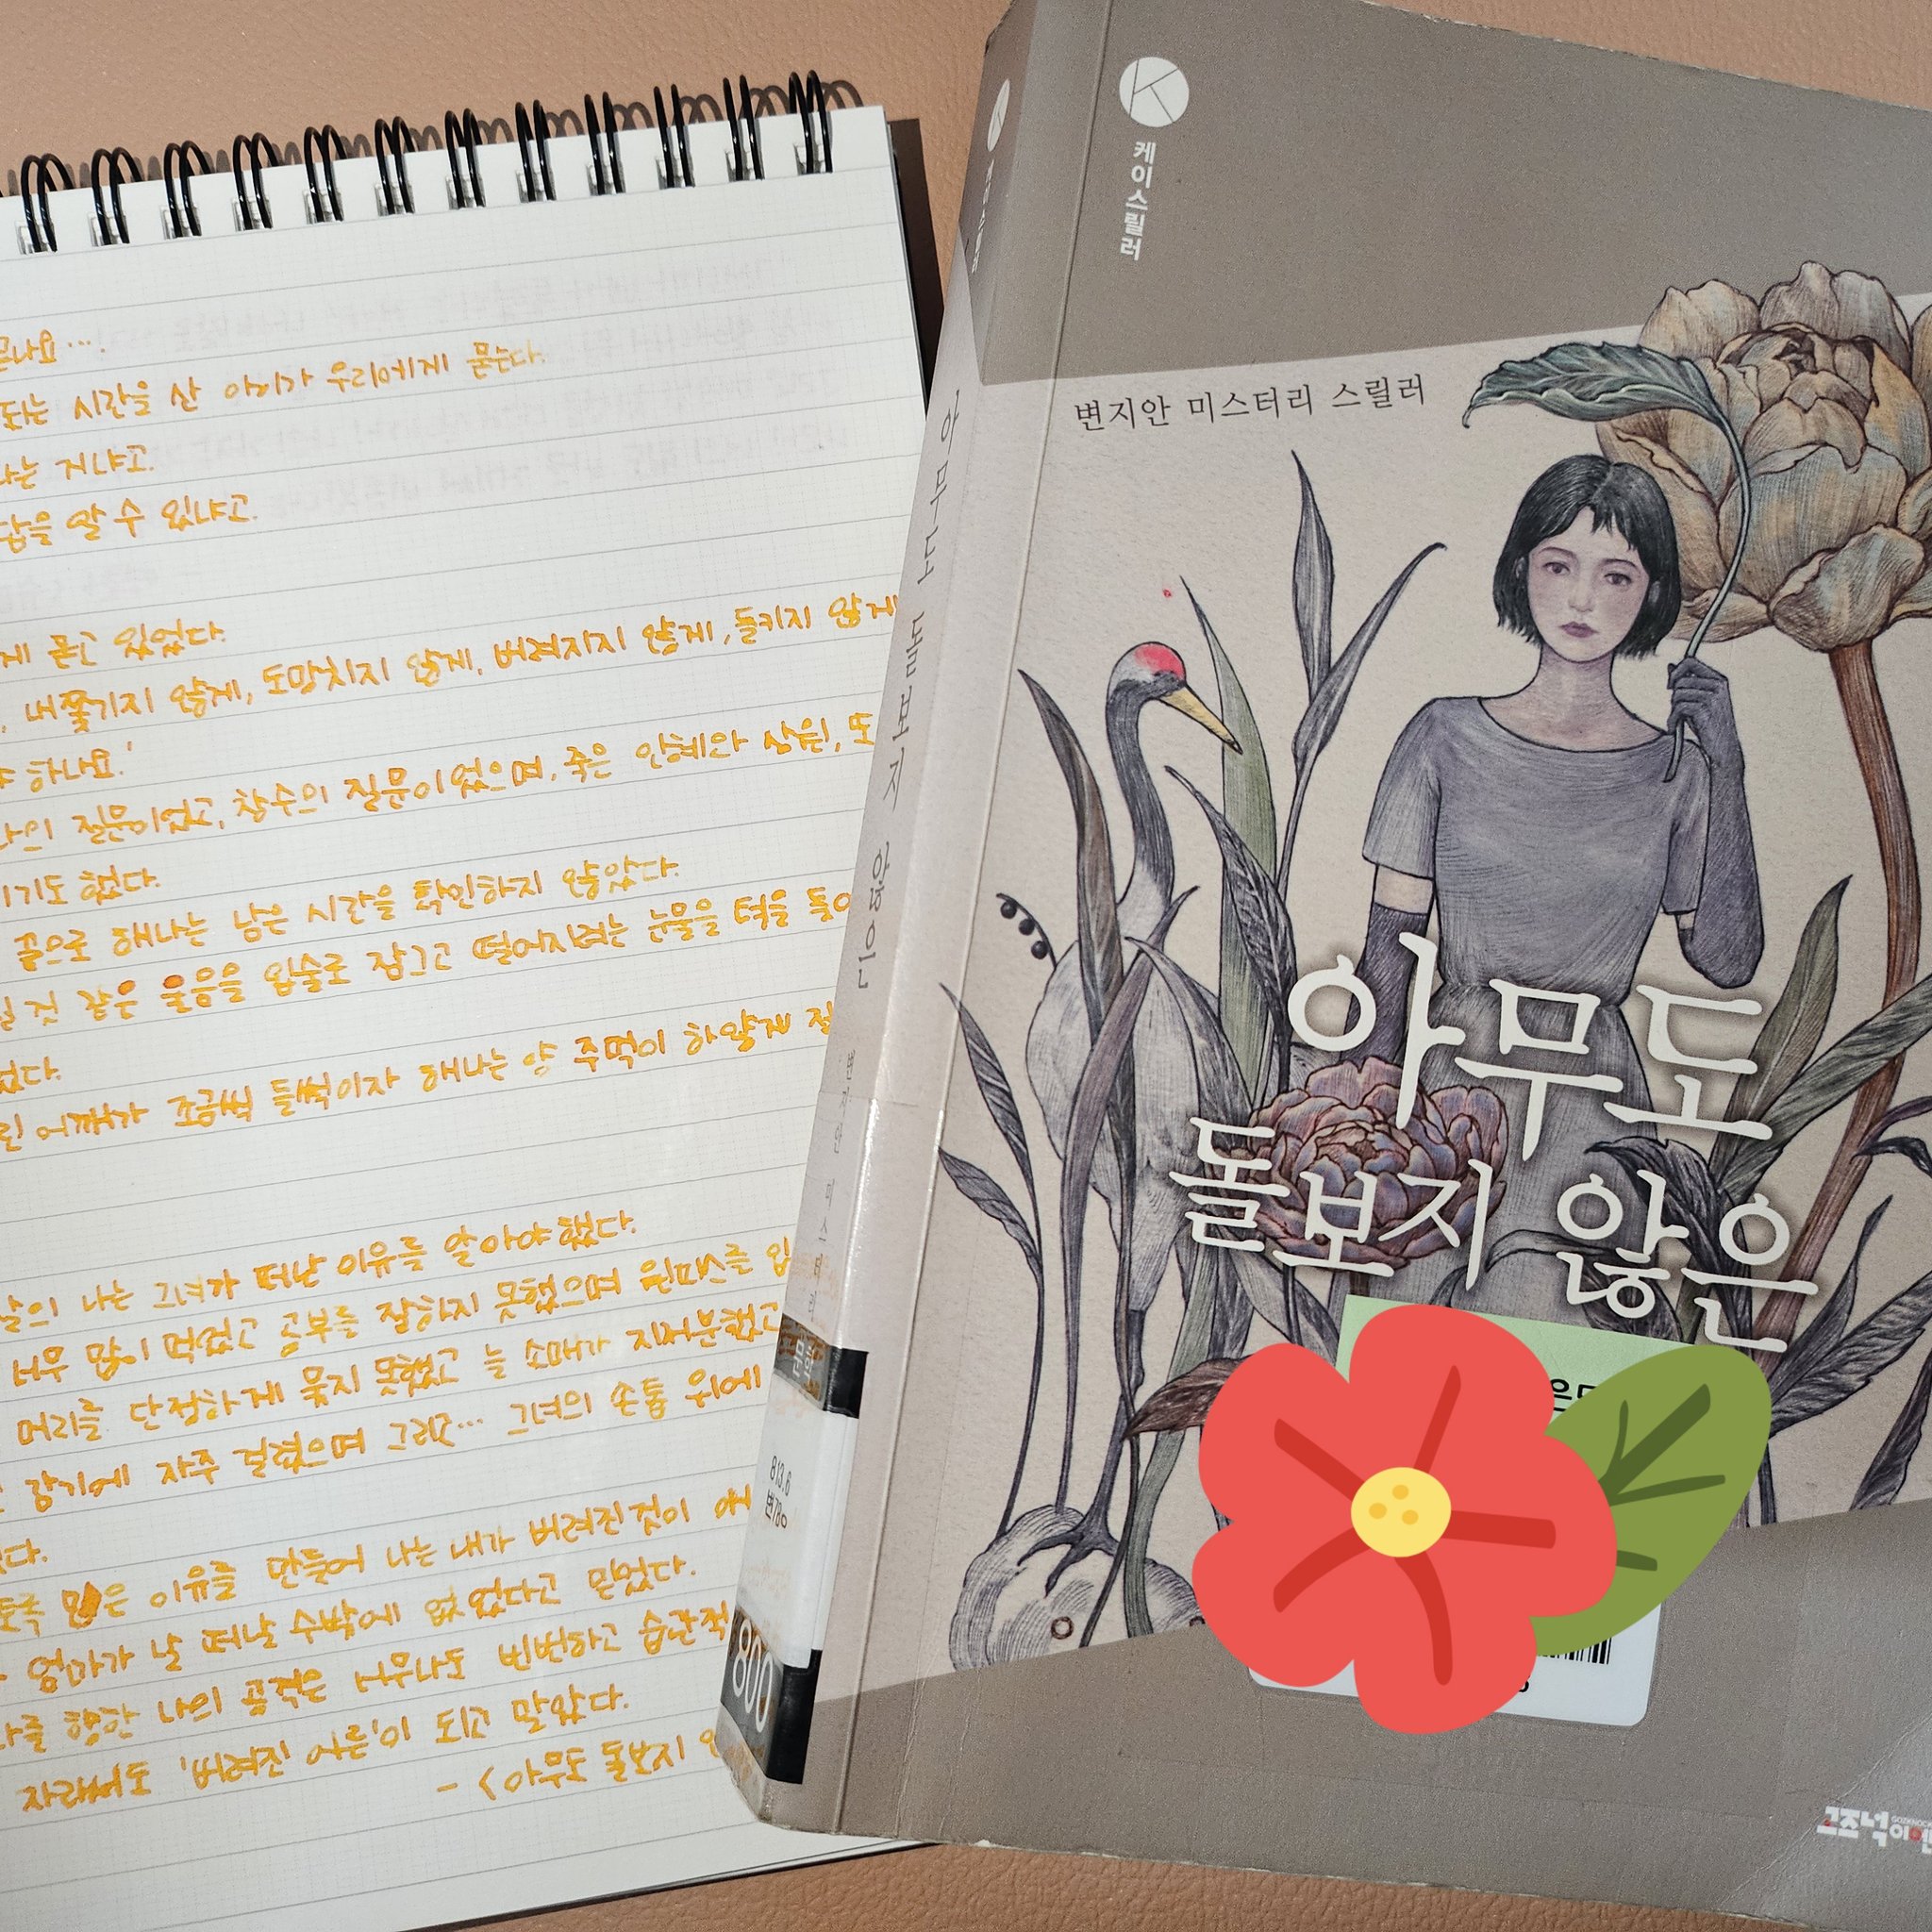 되는 시간을 산 아이가 우리에게 묻는다.
는 거냐고.
답을 알 수 있냐고.
게 묻고 있었다.
내쫓기지 않게, 도망치지 않게, 버려지지 않게, 들키지 않게
하나요.'
나의 질문이었고, 창수의 질문이었으며, 죽은 안혜와 상원, 또
기도 했다.
끝으로 해나는 남은 시간을 확인하지 않았다.
것 같은 울음을 입술로 잠그고 떨어지려는 눈물을 턱을
었다.
어깨가 조금씩 들썩이자 해나는 양 주먹이 하얗게 질
날의 나는 그녀가 떠난 이유를 알아야 했다.
너무 많이 먹었고 공부를 잘하지 못했으며 원피스를 입
머리를 단정하게 묶지 못했고 늘 소매가 지저분했고
감기에 자주 걸렸으며 그리고… 그녀의 손톱 위에
많은 이유를 만들어 나는 내가 버려진 것이
엄마가 날 떠날 수밖에 없었다고 믿었다.
나를 향한 나의 공격은 너무나도 빈번하고 습관적
자라서도 '버려진 어른'이 되고 말았다.
- <아무도 돌보지
케이스릴러
변지안 미스터리 스릴러
아무도
돌보지 않은
아무도 돌보지 않은
변지안 미스터리
문학
813.6
변78ㅇ
800
고즈넉이엔